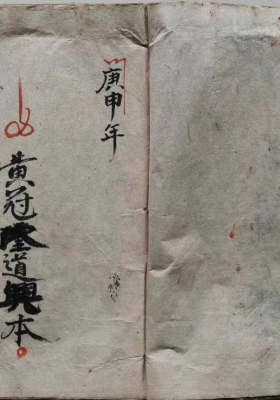 庚申年
黄冠隆道興本